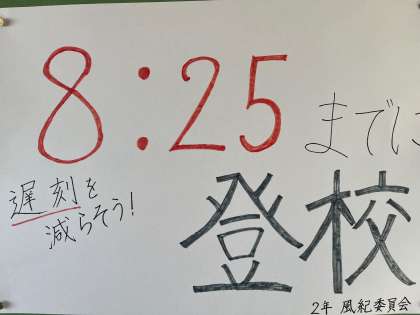 8:25までに
遅刻を
減らそう!
登校
2年 風紀委員会